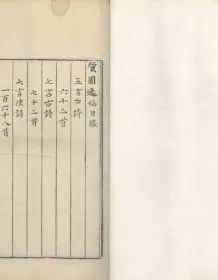 質園逸稿目錄
五言古詩
六十二首
七言古詩
七十二首
七言律詩
一百六十八首